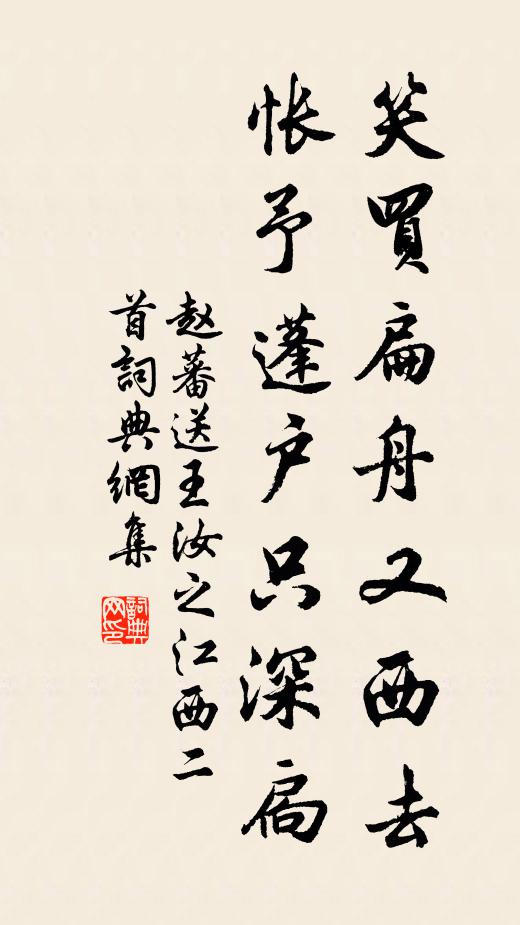 笑買扁舟又西去
悵予蓬户只深扃
赵蕃送王汝之江西二
首詞典網集
詞典网印